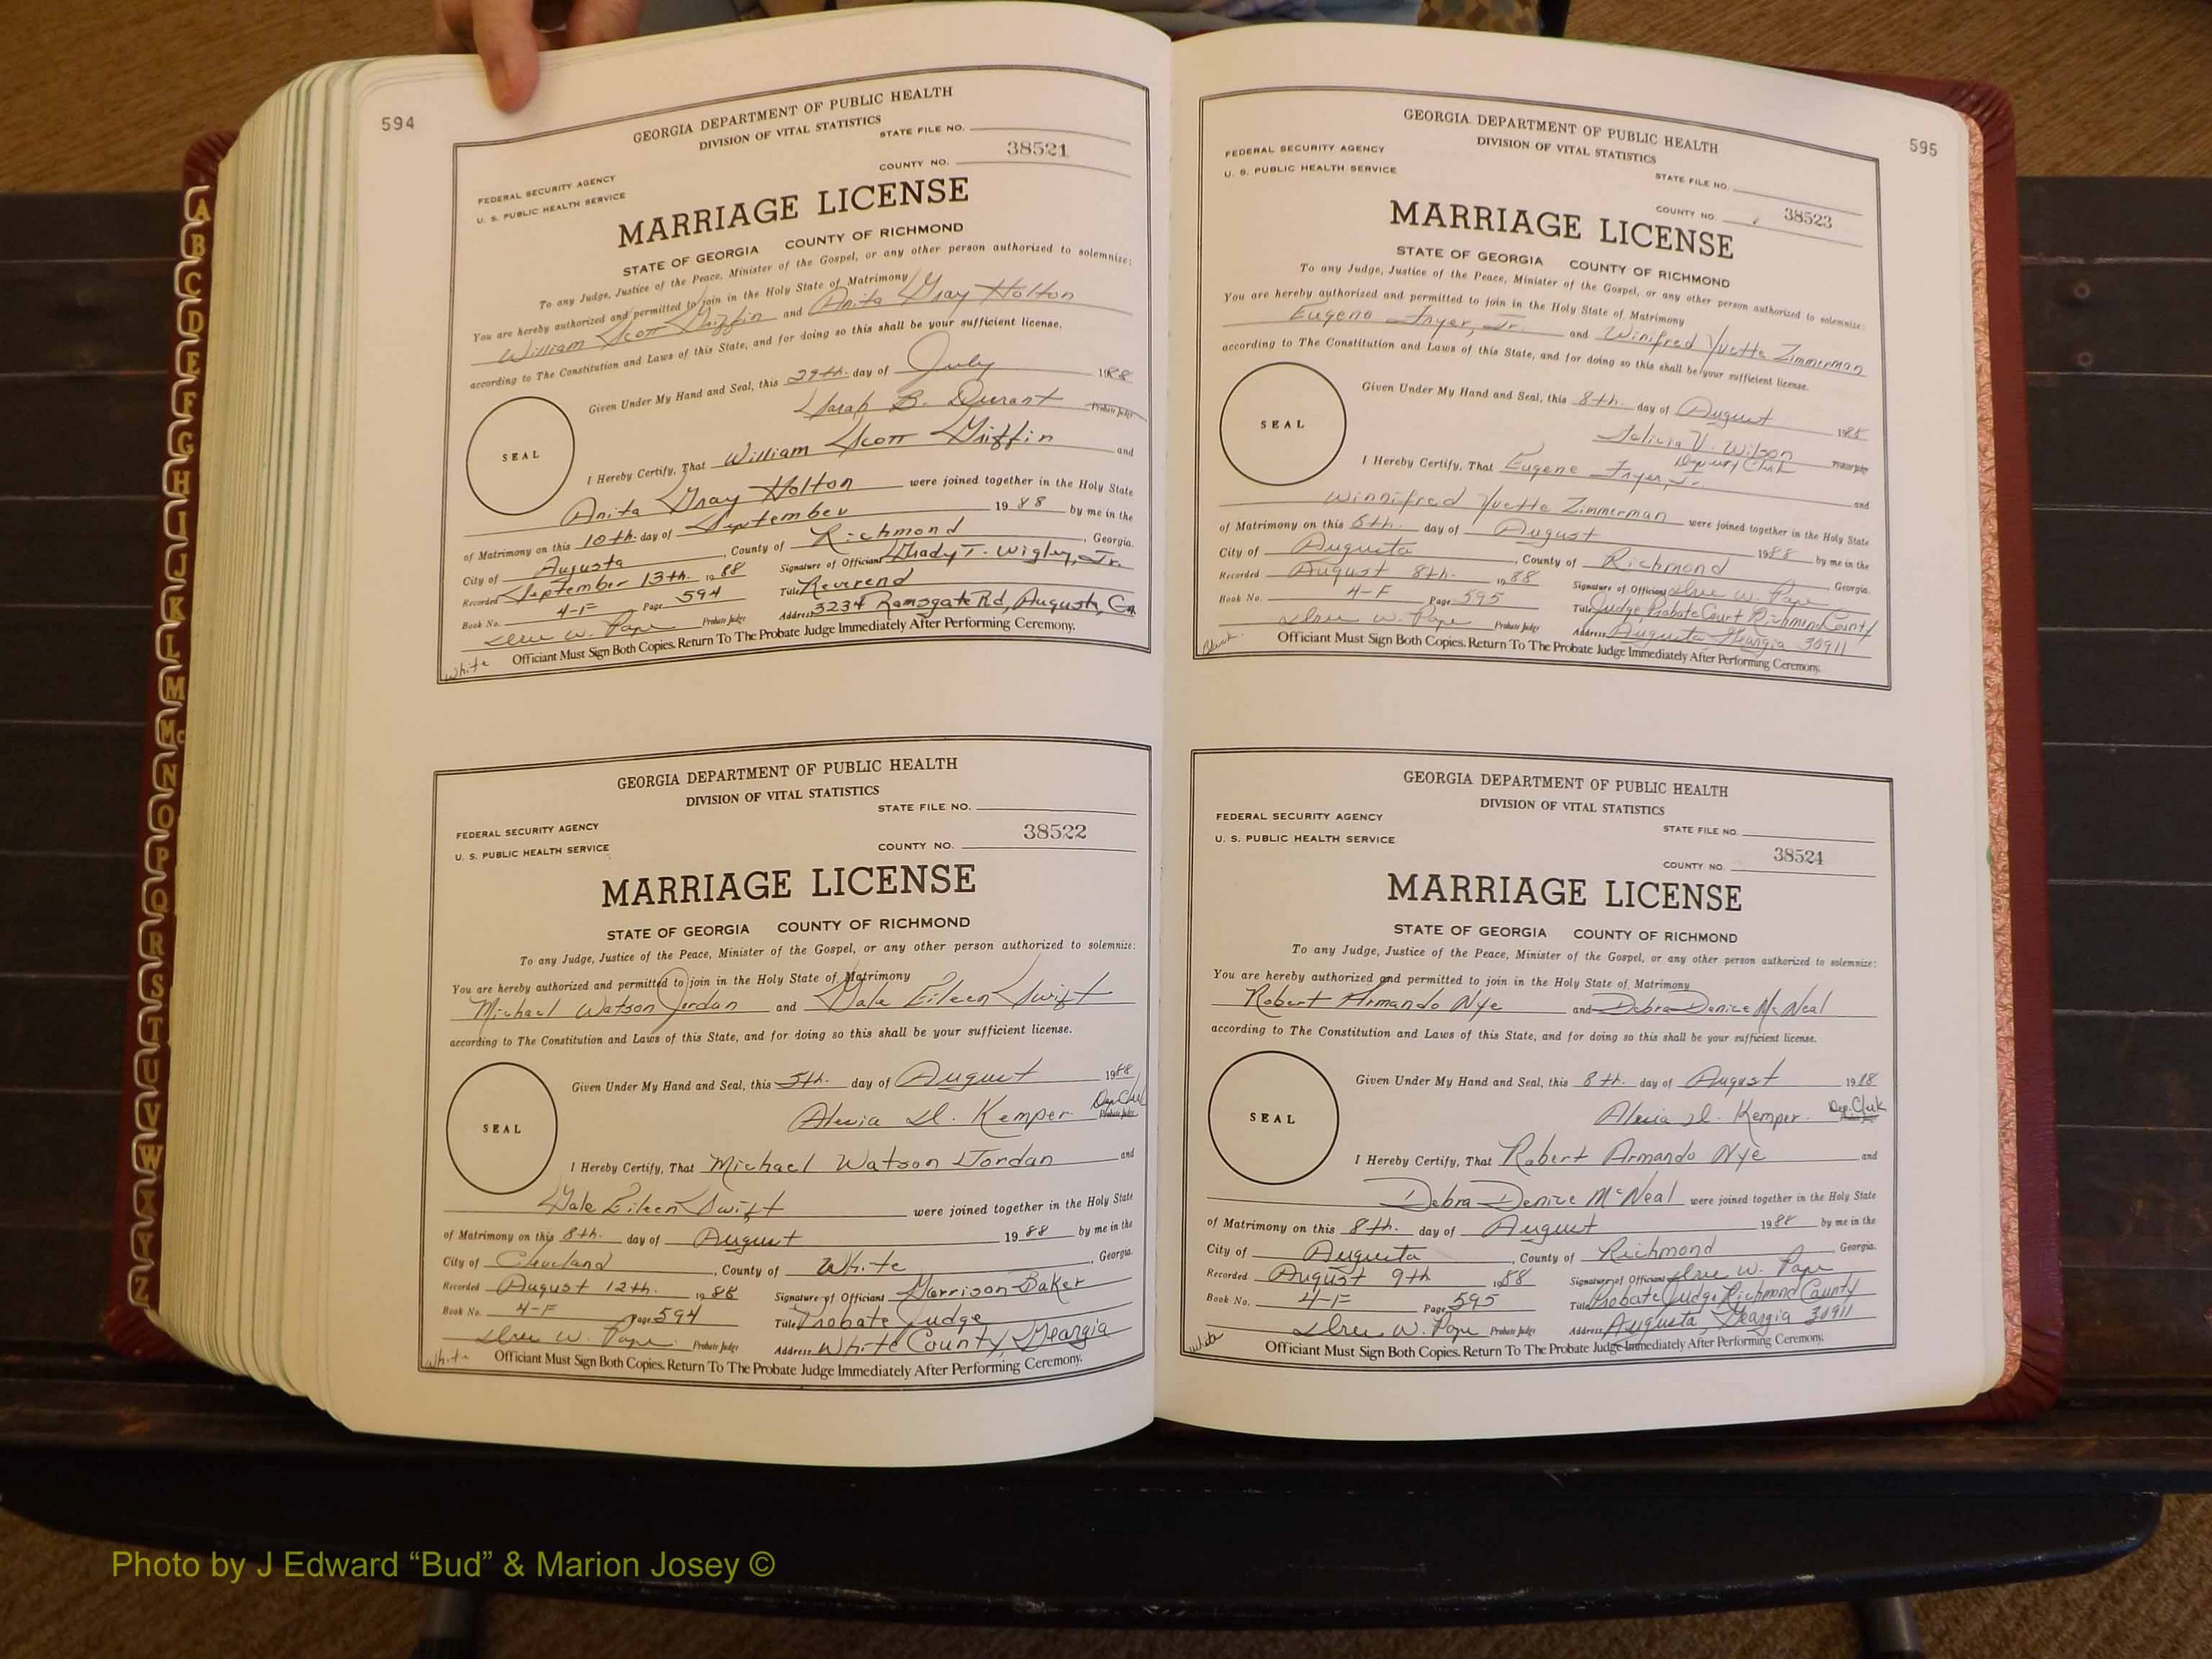 594
GEORGIA DEPARTMENT OF PUBLIC HEALTH
DIVISION OF VITAL STATISTICS
STATE FILE NO.
38521
COUNTY NO.
FEDERAL SECURITY AGENCY
U. S. PUBLIC HEALTH SERVICE
MARRIAGE LICENSE
STATE OF GEORGIA COUNTY OF RICHMOND
To any Judge, Justice of the Peace, Minister of the Gospel, or any other person authorized to solemnize:
You are hereby authorized and permitted to join in the Holy State of Matrimony
William Scott Griffin and Anita Gray Holton
according to The Constitution and Laws of this State, and for doing so this shall be your sufficient license.
Given Under My Hand and Seal, this 29th. day of July 1988
Sarah B. Durant Probate Judge
SEAL
I Hereby Certify, That William Scott Griffin and
Anita Gray Holton were joined together in the Holy State
of Matrimony on this 10th. day of September 1988 by me in the
City of Augusta, County of Richmond, Georgia.
Recorded September 13th. 1988 Signature of Official Grady T. Wigley, Jr.
Book No. 4-F Page 594 Title Reverend
Probate Judge Address 3234 Ramsgate Rd, Augusta, Ga
Officiant Must Sign Both Copies. Return To The Probate Judge Immediately After Performing Ceremony.
White
GEORGIA DEPARTMENT OF PUBLIC HEALTH
DIVISION OF VITAL STATISTICS
STATE FILE NO.
38522
FEDERAL SECURITY AGENCY
U. S. PUBLIC HEALTH SERVICE
COUNTY NO.
MARRIAGE LICENSE
STATE OF GEORGIA COUNTY OF RICHMOND
To any Judge, Justice of the Peace, Minister of the Gospel, or any other person authorized to solemnize:
You are hereby authorized and permitted to join in the Holy State of Matrimony
Michael Watson Jordan and Gale Eileen Swift
according to The Constitution and Laws of this State, and for doing so this shall be your sufficient license.
Given Under My Hand and Seal, this 5th. day of August 1988
D. Kemper Dep. Clerk Probate Judge
SEAL
I Hereby Certify, That Michael Watson Jordan and
Gale Eileen Swift were joined together in the Holy State
of Matrimony on this 8th. day of August 1988 by me in the
City of Cleveland, County of White, Georgia.
Recorded August 12th. 1988 Signature of Official Garrison Baker
Book No. 4-F Page 594 Title Probate Judge
Probate Judge Address White County, Georgia
Officiant Must Sign Both Copies. Return To The Probate Judge Immediately After Performing Ceremony.
White
595
GEORGIA DEPARTMENT OF PUBLIC HEALTH
DIVISION OF VITAL STATISTICS
FEDERAL SECURITY AGENCY
U. S. PUBLIC HEALTH SERVICE
STATE FILE NO.
COUNTY NO. 38523
MARRIAGE LICENSE
STATE OF GEORGIA COUNTY OF RICHMOND
To any Judge, Justice of the Peace, Minister of the Gospel, or any other person authorized to solemnize:
You are hereby authorized and permitted to join in the Holy State of Matrimony
Eugene Fryer, Jr. and Winifred Yvette Zimmerman
according to The Constitution and Laws of this State, and for doing so this shall be your sufficient license.
Given Under My Hand and Seal, this 8th. day of August 1988
V. Wilson Probate Judge
Deputy Clerk
SEAL
I Hereby Certify, That Eugene Fryer, Jr. and
Winnifred Yvette Zimmerman were joined together in the Holy State
of Matrimony on this 8th. day of August 1988 by me in the
City of Augusta, County of Richmond Georgia.
Recorded August 8th. 1988 Signature of Official W. Pope
Book No. 4-F Page 595 Title Judge, Probate Court Richmond County
W. Pope Probate Judge Address Augusta Georgia 30911
Officiant Must Sign Both Copies. Return To The Probate Judge Immediately After Performing Ceremony.
Black
GEORGIA DEPARTMENT OF PUBLIC HEALTH
DIVISION OF VITAL STATISTICS
FEDERAL SECURITY AGENCY
U. S. PUBLIC HEALTH SERVICE
STATE FILE NO.
COUNTY NO. 38524
MARRIAGE LICENSE
STATE OF GEORGIA COUNTY OF RICHMOND
To any Judge, Justice of the Peace, Minister of the Gospel, or any other person authorized to solemnize:
You are hereby authorized and permitted to join in the Holy State of Matrimony
Robert Armando Nye and Debra Denice McNeal
according to The Constitution and Laws of this State, and for doing so this shall be your sufficient license.
Given Under My Hand and Seal, this 8th. day of August 1988
D. Kemper Dep. Clerk
SEAL
I Hereby Certify, That Robert Armando Nye and
Debra Denice McNeal were joined together in the Holy State
of Matrimony on this 8th. day of August 1988 by me in the
City of Augusta, County of Richmond, Georgia.
Recorded August 9th 1988 Signature of Official W. Pope
Book No. 4-F Page 595 Title Probate Judge, Richmond County
W. Pope Probate Judge Address Augusta, Georgia 30911
Officiant Must Sign Both Copies. Return To The Probate Judge Immediately After Performing Ceremony.
White
A
B
C
D
E
F
G
H
I
J
K
L
M
Mc
N
O
P
Q
R
S
T
U
V
W
X
Y
Z
Photo by J Edward “Bud” & Marion Josey ©